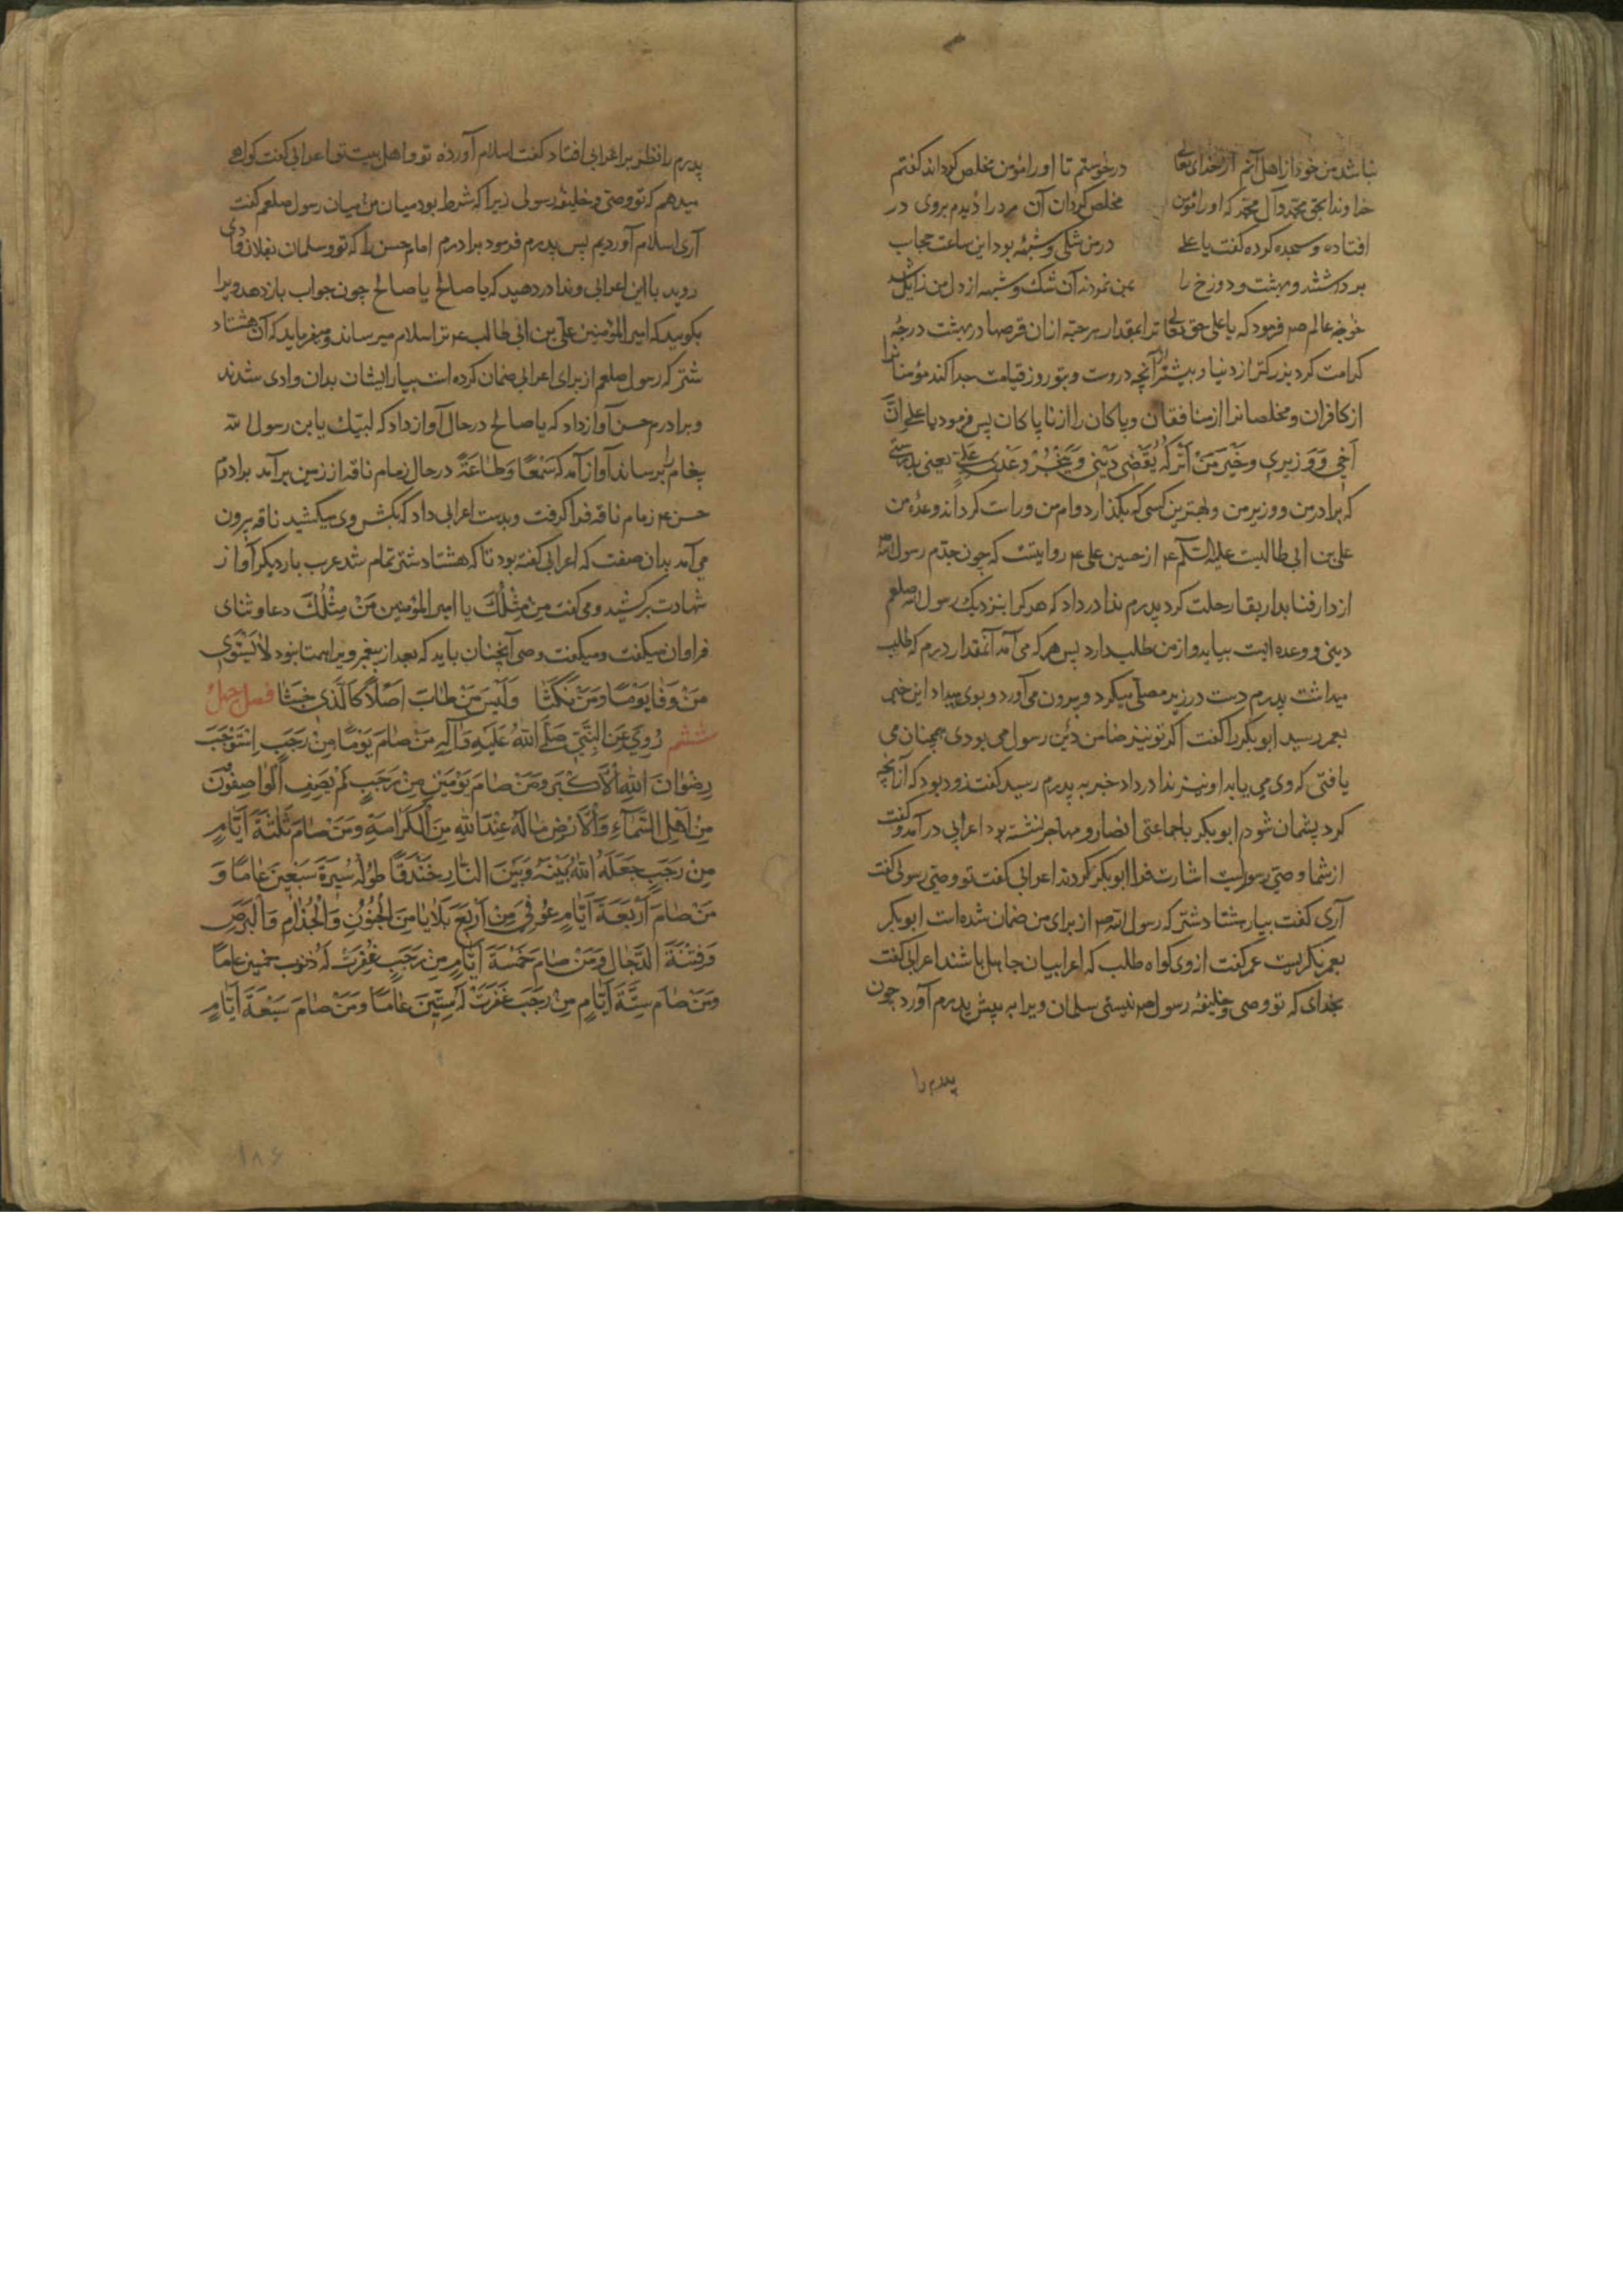 نباشد من خود از اهل آنم از خدای تعالی درخوستم تا او را مؤمن مخلص کرداند کفتم
خداوندا بحق محمد وآل محمد که او را مؤمن مخلص کردان آن مرد را دیدم بروی در
افتاده و سجده کرده کفت یا علی در من شکی و شبهه بود این ساعت حجاب
برداشتند و بهشت و دوزخ را بمن نمودند آن شک و شبهه از دل من زایل شد
خواجه عالم ص فرمود که یا علی حق تعالی ترا بمقدار هر حبّه ازان قرصها در بهشت درجهٔ
کرامت کرد بزرکتر از دنیا و بیشتر از آنچه دروست و بتو روز قیامت جدا کند مؤمنانرا
از کافران و مخلصانرا از منافقان و پاکان را از ناپاکان پس فرمود یا علی انَّ
اَخی وَ وَزیری وخَیْرَ مَنْ اَتْرُکُهُ یُقَضی دَیْنی وَیُنْجِزُ وَعْدی علی یعنی بدرستی
که برادر من و وزیر من و بهترین کسی که بگذارد وام من و راست کرداند وعدهٔ من
علی بن ابی طالبست علیه السّلام از حسین علی ع روایتست که چون جدّم رسول الله ص
از دار فنا بدار بقا رحلت کرد پدرم ندا در داد که هر کرا بنزدیک رسول الله صلعم
دینی و وعده است بیاید و از من طلب دارد پس هر که می آمد آنمقدار درم که طلب
میداشت پدرم دست در زیر مصلّی میکرد و بیرون می آورد و بوی میداد این خبر
بعمر رسید ابوبکر را کفت اکر تو نیز ضامن دَیْن رسول می بودی همچنان می
یافتی که وی می یابد او نیز ندا در داد خبر به پدرم رسید کفت زود بود که از آنچه
کرد پشمان شود ابوبکر با جماعتی انصار و مهاجر نشسته بود اعرابی در آمد و کفت
از شما وصیّ رسول کیست اشارت فرا ابوبکر کردند اعرابی کفت تو وصیّ رسولی کفت
آری کفت بیار هشتاد شتر که رسول الله ص از برای من ضمان شده است ابوبکر
بعمر نکریست عمر کفت ازوی کواه طلب که اعرابیان جاهل باشند اعرابی کفت
بخدای که تو وصی و خلیفهٔ رسول ص نیستی سلمان ویرا به پیش پدرم آورد چون
پدرم را
پدرم را نظر بر اعرابی افتاد کفت اسلام آوردهٔ تو و اهل بیت تو اعرابی کفت کواهی
میدهم که تو وصیّ و خلیفه رسولی زیرا که شرط بود میان من و میان رسول صلعم کفت
آری اسلام آوردیم پس پدرم فرمود برادرم امام حسن را که تو و سلمان بفلان وادی
روید با این اعرابی و ندا در دهید که یا صالح یا صالح چون جواب باز دهد ویرا
بکویید که امیر المؤمنین علی بن ابی طالب ع ترا سلام میرساند و میفرماید که آن هشتاد
شتر که رسول صلعم از برای اعرابی ضمان کرده است بیار ایشان بدان وادی شدند
و برادرم حسن آواز داد که یا صالح در حال آواز داد که لبّیک یا بن رسول الله
پیغام برسانید آواز آمد که سَمْعًا وَطاعَةً در حال زمام ناقه از زمین برآمد برادرم
حسن ع زمام ناقه فرا کرفت و بدست اعرابی داد که بکش وی میکشید ناقه بیرون
می آمد بدان صفت که اعرابی کفته بود تا که هشتاد شتر تمام شد عرب بار دیکر آواز
شهادت برکشید و می کفت مَنْ مِثْلُکَ یا امیر المؤمنین مَنْ مِثْلُکَ دعا و ثنای
فراوان میکفت و میکفت وصی آنچنان باید که بعد از پیغمبر ویرا همتا نبود لا یَسْتَوی
مَنْ وَفا یَوْمًا وَمَنْ نَکَثا وَلَیْسَ مَنْ طابَ اَصْلاً کَالَّذی خَبَثا فصل چهل
ششم رُوِیَ عَنِ النَّبِیِّ صَلَّی اللهُ عَلَیْهِ وَآلِهِ مَنْ صامَ یَوْمًا مِنْ رَجَبٍ اِسْتَوْجَبَ
رِضْوانَ اللهِ الْاَکْبَر وَمَنْ صامَ یَوْمَیْنِ مِنْ رَجَبٍ لَمْ یَصِفِ الْواصِفُونَ
مِنْ اَهْلِ السَّمآءِ وَالْاَرْضِ مالَهُ عِنْدَ اللهِ مِنَ الْکَرامَةِ وَمَنْ صامَ ثَلٰثَةَ اَیّامٍ
مِنْ رَجَبٍ جَعَلَهُ اللهُ بَیْنَهُ وَبَیْنَ النّارِ خَنْدَقًا طُولُهُ سُیرَةَ سَبْعینَ عامًا وَ
مَنْ صامَ اَرْبَعَةَ اَیّامٍ عُوفِیَ مِنْ اَرْبَعِ بَلایا مِنَ الْجُنُونِ وَالْجُذامِ وَالْبَرَصِ
وَفِتْنَةَ الدَّجّالِ وَمَنْ صامَ خَمْسَةَ اَیّامٍ مِنْ رَجَبٍ غُفِرَتْ لَهُ ذنوب خمسین عامًا
وَمَنْ صامَ سِتَّةَ اَیّامٍ مِنْ رَجَبٍ غُفِرَتْ لَهُ سِتّینَ عامًا وَمَنْ صامَ سَبْعَةَ اَیّامٍ
۱۸۶